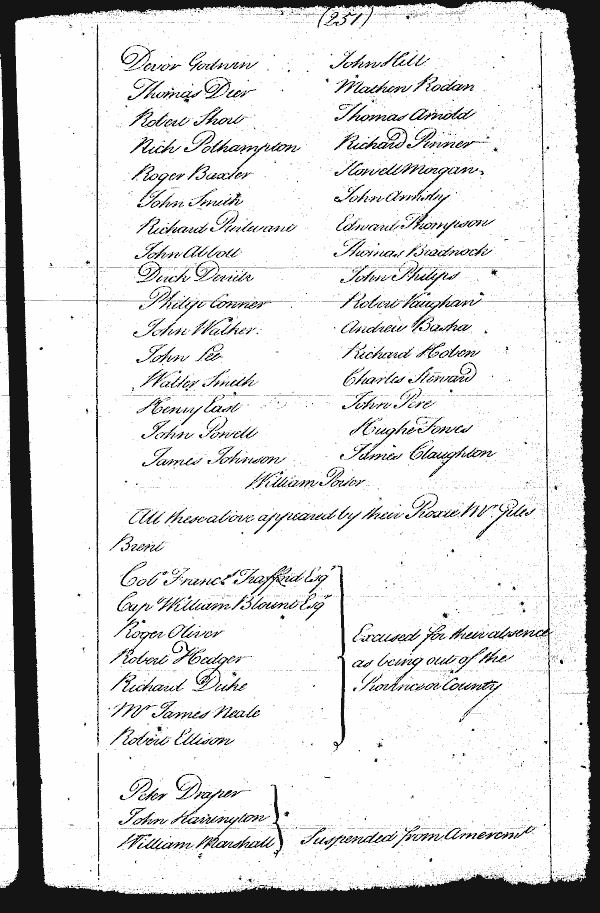 (251)
Devor Godwin John Hill
Thomas Deer Mathew Rodan
Robert Short Thomas Arnold
Rich Pothampton Richard Pinner
Roger Baxter Howell Morgan
John Smith John Armsby
Richard John Abbott Edward Thompson
Thomas Bradnock
Derick John Philips
Philip Conner Robert Vaughan
John Walker Andrew Basha
John Lee Richard Hoben
Walter Smith Charles Steward
Henry East John Pere
John Powell Hughe Jones
James Johnson James Claughton
William Porter
All these above appeared by their Proxie Mr. Giles
Brent
Colo. Francs Trafford Esqr
Capt William Blount Esqr
Roger Oliver Excused for their absence
Robert Hedger as being out of the
Richard Duke Province or County
Mr James Neale
Robert Ellison
Peter Draper
John Harrington
William Marshall Suspended from Amercmt